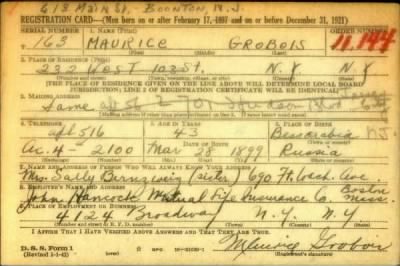 613 Main St, Boonton, N.J.
REGISTRATION CARD—(Men born on or after February 17, 1897 and on or before December 31, 1921)
SERIAL NUMBER 1. NAME (Print) ORDER NUMBER
163 MAURICE GROBOIS 11,144
2. PLACE OF RESIDENCE (Print)
232 WEST 103 St. N.Y N.Y
(Number and street) (Town, township, village, or city) (County) (State)
[THE PLACE OF RESIDENCE GIVEN ON THE LINE ABOVE WILL DETERMINE LOCAL BOARD
JURISDICTION; LINE 2 OF REGISTRATION CERTIFICATE WILL BE IDENTICAL]
3. MAILING ADDRESS
Same
4. TELEPHONE 5. AGE IN YEARS 6. PLACE OF BIRTH
apt 516 43 Bessarabia
DATE OF BIRTH
Ac. 4-2100 Mar 28 1899 Russia
7. NAME AND ADDRESS OF PERSON WHO WILL ALWAYS KNOW YOUR ADDRESS
Mrs Sally (sister) 690 Ft. Wash. Ave.
8. EMPLOYER'S NAME AND ADDRESS
John Hancock Mutual Life Insurance Co. Boston Mass.
9. PLACE OF EMPLOYMENT OR BUSINESS
4124 Broadway N.Y. N.Y
(Number and street or R. F. D. number) (Town) (County) (State)
I AFFIRM THAT I HAVE VERIFIED ABOVE ANSWERS AND THAT THEY ARE TRUE.
D. S. S. Form 1
(Revised 1-1-42) Maurice Grobois
(Registrant's signature)